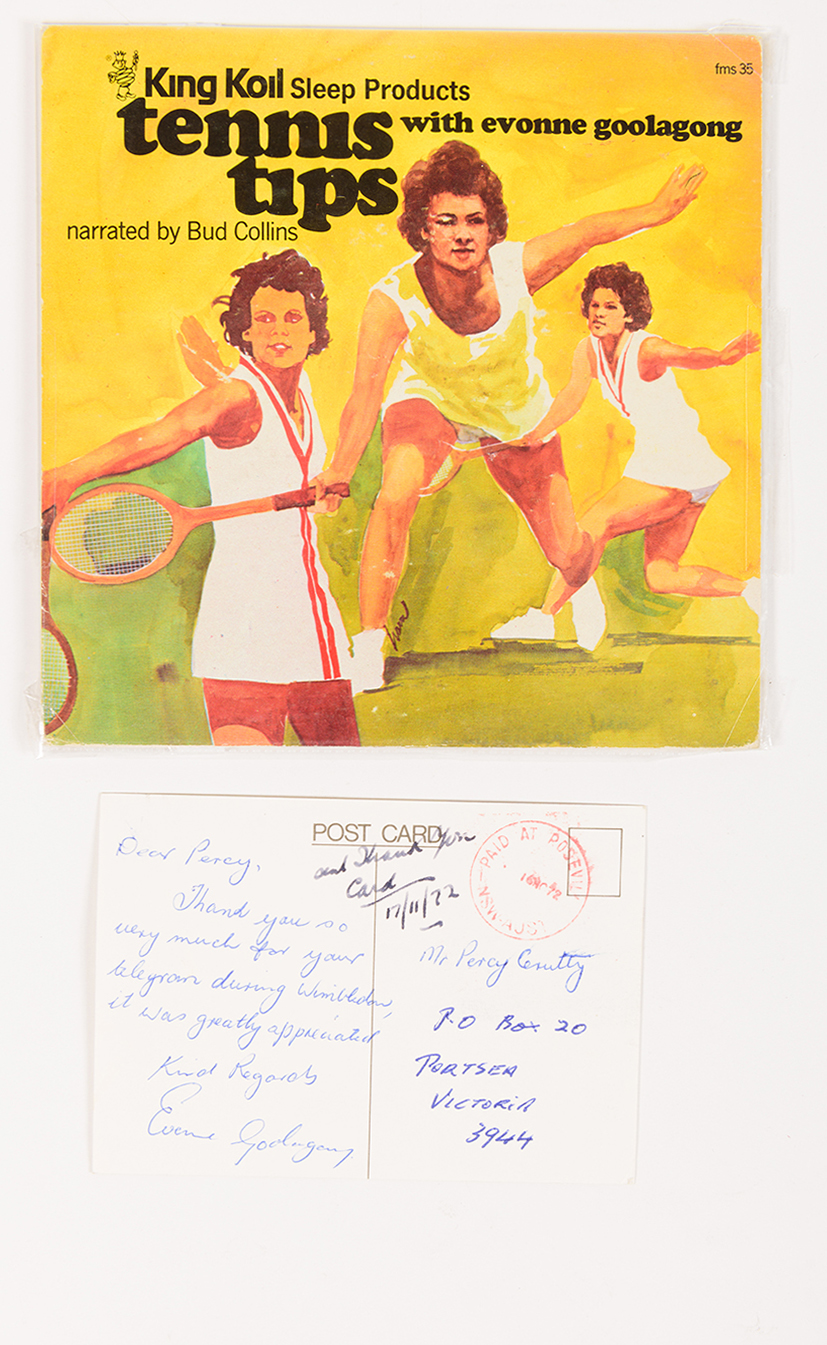 King Koil Sleep Products
fms 35
tennis with evonne goolagong
tips
narrated by Bud Collins
POST CARD
Dear Percy,
Thank you so
very much for your
telegram during Wimbledon,
it was greatly appreciated
Kind Regards
Evonne Goolagong
Thank You
Card
17/11/72
PAID AT ROSEVILLE
NSW-AUST
Mr Percy Cerutty
P.O Box 20
PORTSEA
VICTORIA
3944